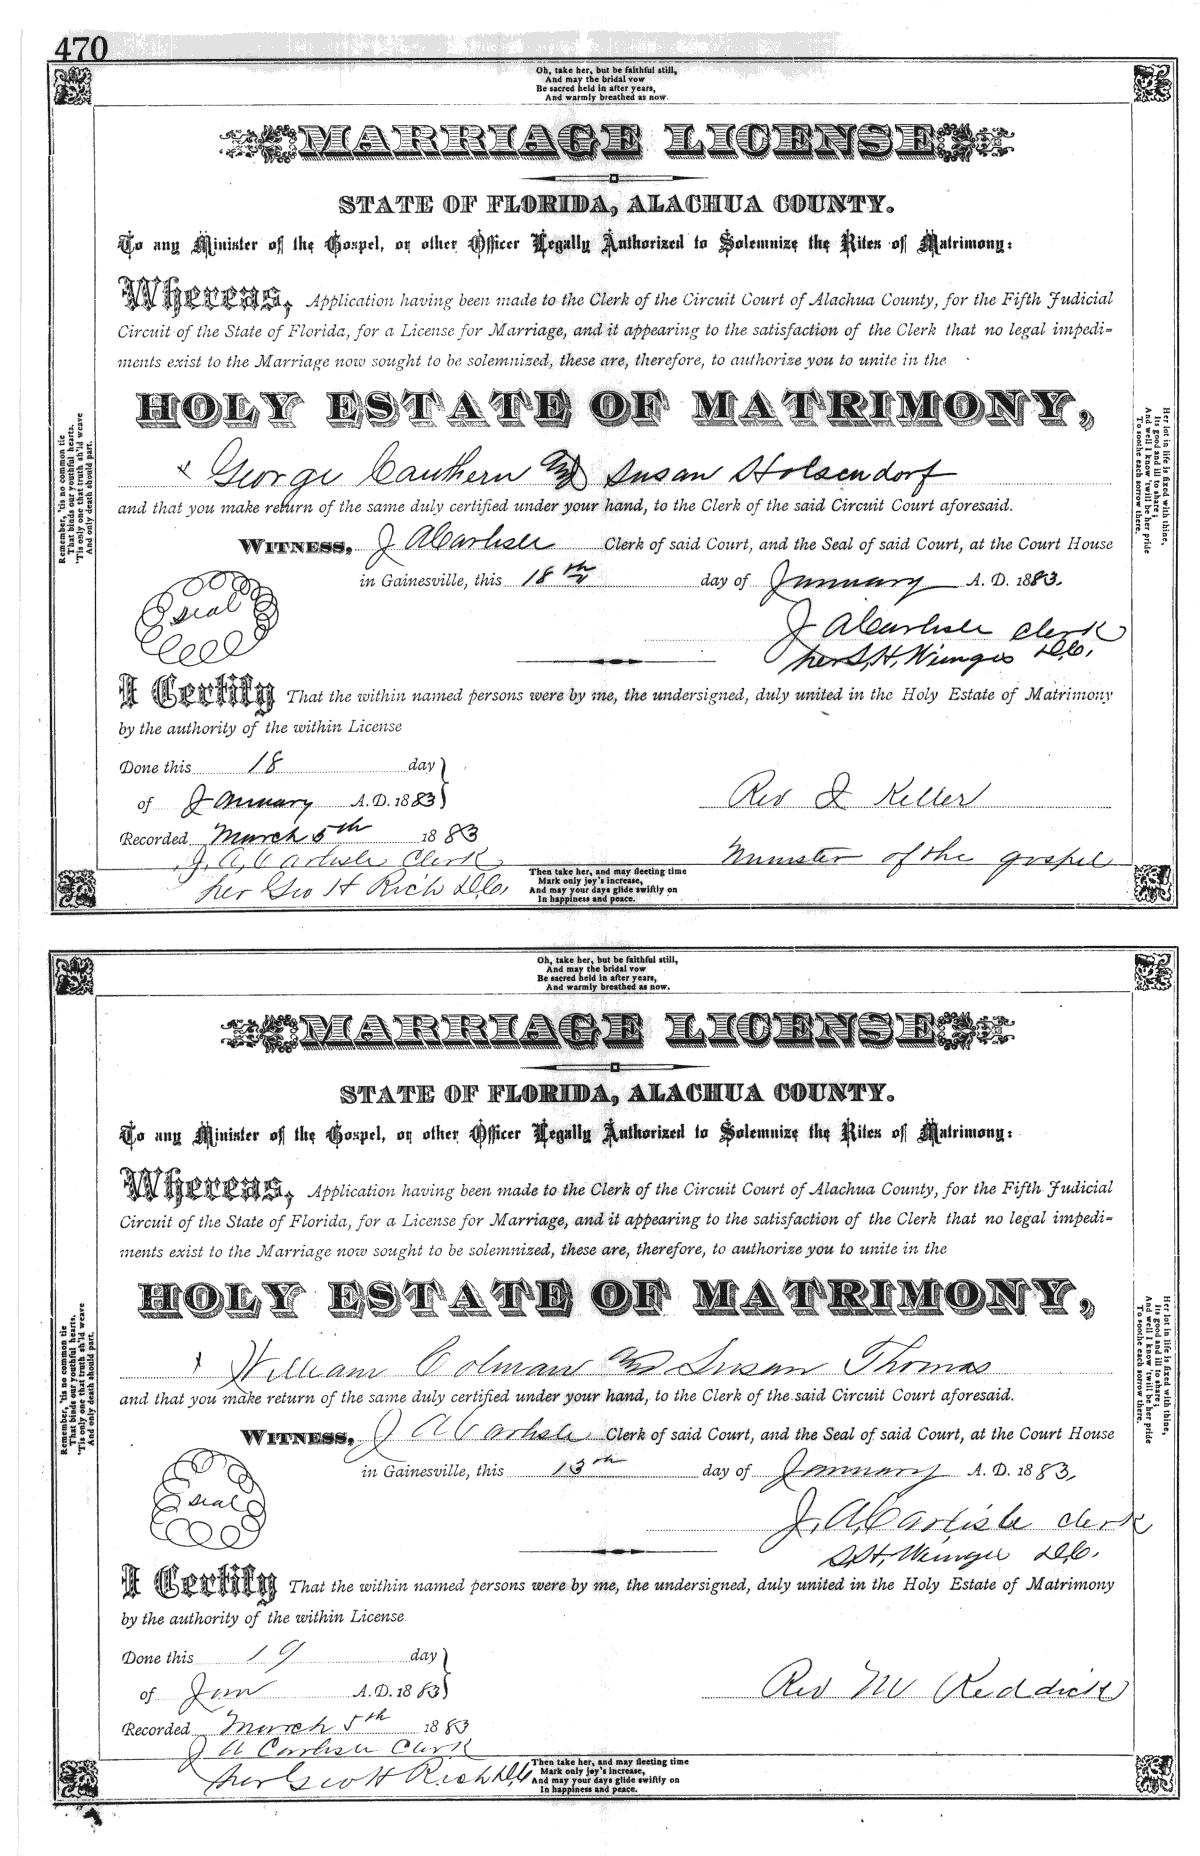 470
Oh, take her, but be faithful still,
And may the bridal vow
Be sacred held in after years,
And warmly breathed as now.
MARRIAGE LICENSE
STATE OF FLORIDA, ALACHUA COUNTY.
To any Minister of the Gospel, or other Officer Legally Authorized to Solemnize the Rites of Matrimony:
Whereas, Application having been made to the Clerk of the Circuit Court of Alachua County, for the Fifth Judicial
Circuit of the State of Florida, for a License for Marriage, and it appearing to the satisfaction of the Clerk that no legal impedi-
ments exist to the Marriage now sought to be solemnized, these are, therefore, to authorize you to unite in the
HOLY ESTATE OF MATRIMONY,
x George Cauthern and Susan Holsendorf
and that you make return of the same duly certified under your hand, to the Clerk of the said Circuit Court aforesaid.
WITNESS, J A Carlisle Clerk of said Court, and the Seal of said Court, at the Court House
in Gainesville, this 18th day of January A. D. 1883.
seal
J A Carlisle Clerk
per S. H. Wienges D.C.
I Certify That the within named persons were by me, the undersigned, duly united in the Holy Estate of Matrimony
by the authority of the within License
Done this 18 day
of January A.D. 1883
Rev I Keller
Recorded March 5th 1883
J. A. Carlisle Clerk
Minister of the gospel
per Geo H Rich D.C.
Then take her, and may fleeting time
Mark only joy's increase,
And may your days glide swiftly on
In happiness and peace.
Remember, 'tis no common tie
That binds our youthful hearts,
'Tis only one that truth sh'ld weave
And only death should part.
Her lot in life is fixed with thine,
Its good and ill to share;
And well I know 'twill be her pride
To soothe each sorrow there.
Oh, take her, but be faithful still,
And may the bridal vow
Be sacred held in after years,
And warmly breathed as now.
MARRIAGE LICENSE
STATE OF FLORIDA, ALACHUA COUNTY.
To any Minister of the Gospel, or other Officer Legally Authorized to Solemnize the Rites of Matrimony:
Whereas, Application having been made to the Clerk of the Circuit Court of Alachua County, for the Fifth Judicial
Circuit of the State of Florida, for a License for Marriage, and it appearing to the satisfaction of the Clerk that no legal impedi-
ments exist to the Marriage now sought to be solemnized, these are, therefore, to authorize you to unite in the
HOLY ESTATE OF MATRIMONY,
x William Colman and Susan Thomas
and that you make return of the same duly certified under your hand, to the Clerk of the said Circuit Court aforesaid.
WITNESS, J A Carlisle Clerk of said Court, and the Seal of said Court, at the Court House
in Gainesville, this 13th day of January A. D. 1883.
seal
J. A. Carlisle Clerk
S. H. Wienges D.C.
I Certify That the within named persons were by me, the undersigned, duly united in the Holy Estate of Matrimony
by the authority of the within License
Done this 19 day
of Jan A.D. 1883
Rev M Reddick
Recorded March 5th 1883
J A Carlisle Clerk
per Geo H Rich D.C.
Then take her, and may fleeting time
Mark only joy's increase,
And may your days glide swiftly on
In happiness and peace.
Remember, 'tis no common tie
That binds our youthful hearts,
'Tis only one that truth sh'ld weave
And only death should part.
Her lot in life is fixed with thine,
Its good and ill to share;
And well I know 'twill be her pride
To soothe each sorrow there.